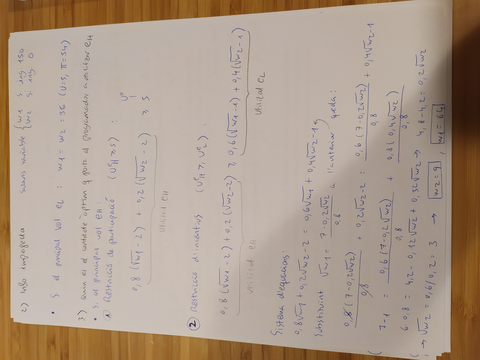 2) Info imperfecta salaris variable { w1 si ing 150
w2 si ing 0
• Si el principal vol eL : w1 = w2 = 36 (U=5, π=54)
3) Quin és el contracte òptim
• Si el principal vol eH :
① Restricció de participació (U⁰H ≥ 5) :
0,8 (√w1 - 2) + 0,2 (√w2 - 2) ≥ 5
utilitat eH
② Restricció d'incentius (U⁰H ≥ U⁰L) :
0,8 (√w1 - 2) + 0,2 (√w2 - 2) ≥ 0,6 (√w1 - 1) + 0,4 (√w2 - 1)
utilitat eH utilitat eL
Sistema d'equacions:
0,8√w1 + 0,2√w2 - 2 = 0,6√w1 + 0,4√w2 - 1
Substituint √w1 = 7 - 0,2√w2 / 0,8 a l'anterior queda:
0,8 (7 - 0,2√w2) / 0,8 + 0,2√w2 - 2 = 0,6 (7 - 0,2√w2) / 0,8 + 0,4√w2 - 1
7 - 1 = 0,6 (7 - 0,2√w2) / 0,8 + 0,8 (0,4√w2) / 0,8
6·0,8 = 4,2 - 0,12√w2 + 0,32√w2 → 4,8 - 4,2 = 0,2√w2
→ √w2 = 0,6/0,2 = 3 → w2 = 9 , w1 = 64